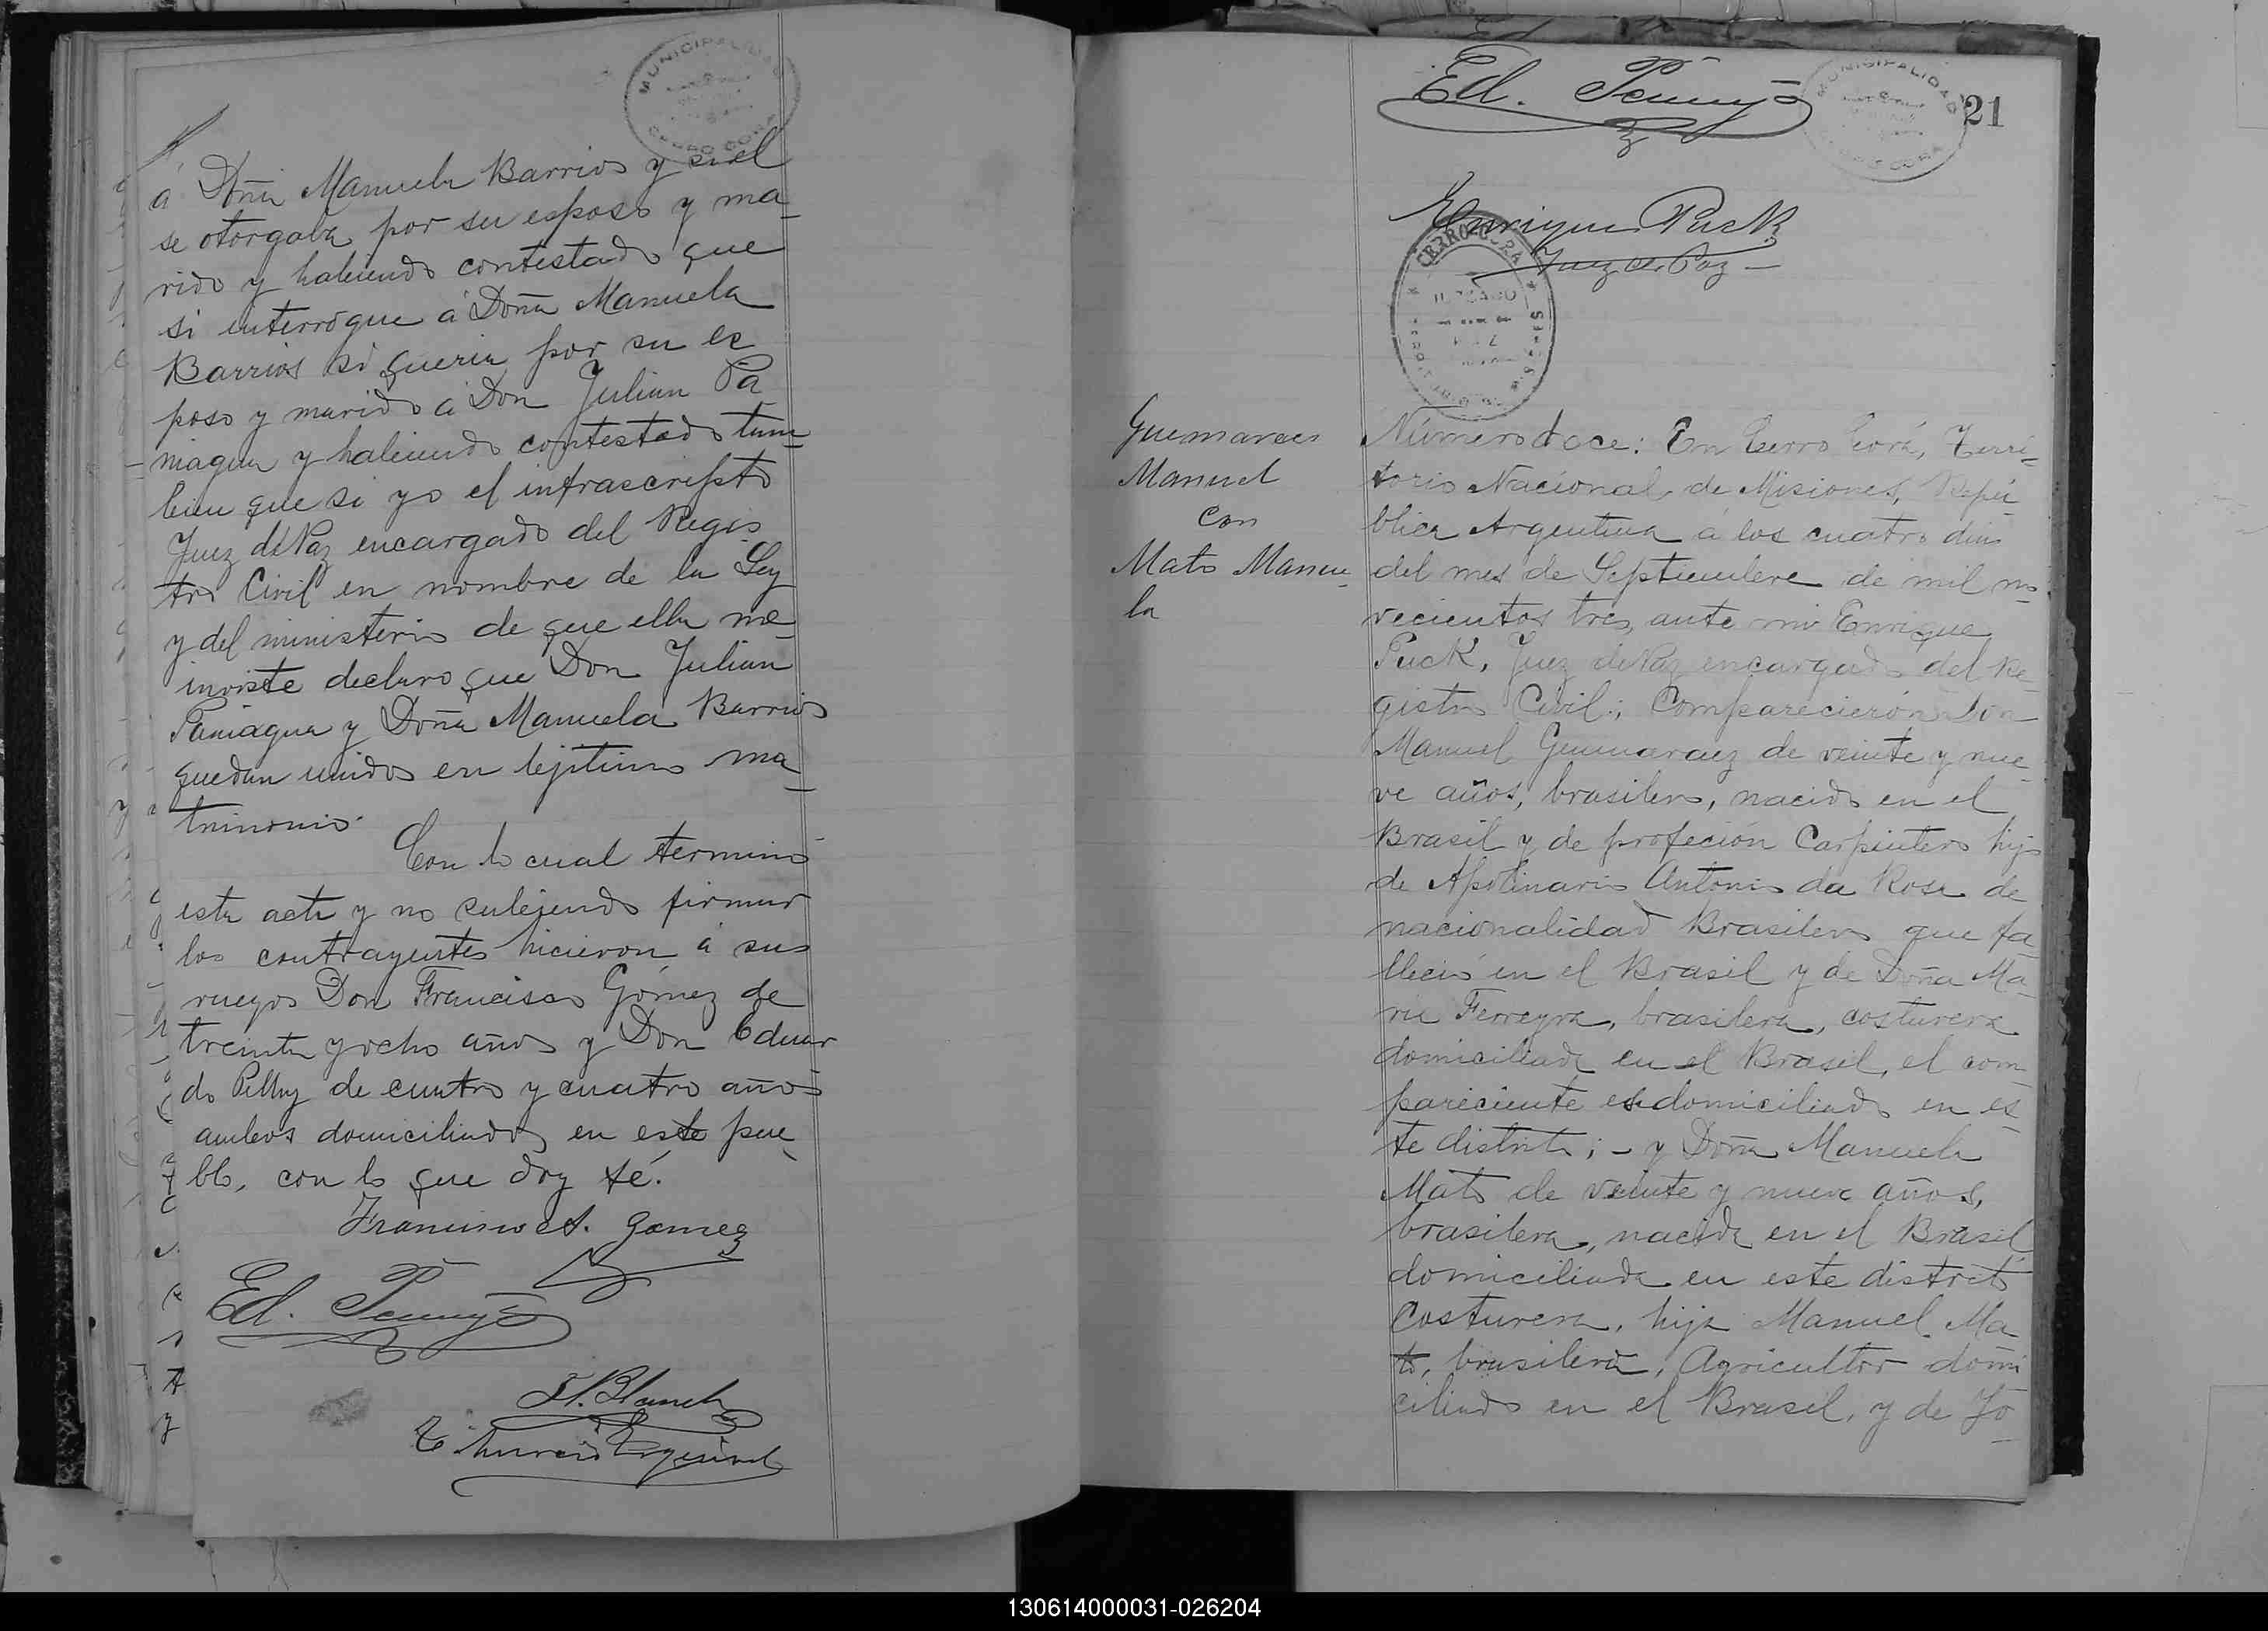 MUNICIPALIDAD
CERRO CORA
á Doña Manuela Barrios y si el
se otorgaba por su esposo y ma_
rido y habiendo contestado que
si interrogue á Doña Manuela
Barrios si queria por su es
poso y marido á Don Julian Pa_
niagua y habiendo contestado tam_
bien que si yo el infrascripto
Juez de Paz encargado del Regis_
tro Civil en nombre de la Ley
y del ministerio de que ella me_
inviste declaro que Don Julian
Paniagua y Doña Manuela Barrios
quedan unidos en lejitimo ma_
trimonio.
Con lo cual termino
esta acta y no sabiendo firmar
los contrayentes hicieron á sus
ruegos Don Francisco Gómez de
treinta y ocho años y Don Eduar
do de cuatro y cuatro años
ambos domiciliados en este pue_
blo, con lo que doy fé.
Francisco A. Gomez
Ed.
Esquivel
MUNICIPALIDAD
CERRO CORA
21
Ed.
Enrique Puck
Juez de Paz –
CERRO-CORA
JUZGADO
PAZ
MISIONES
Guemaraes
Manuel
con
Mato Manue_
la
Número doce: En Cerro Corá, Terri_
torio Nacional de Misiones, Repú_
blica Argentina á los cuatro dias
del mes de Septiembre de mil no_
vecientos tres, ante mi Enrique
Puck, Juez de Paz encargado del Re_
gistro Civil; Comparecierón Don
Manuel Guimaraez de veinte y nue_
ve años, brasilero, nacido en el
Brasil y de profeción Carpintero hijo
de Apolinario Antonio da Rosa de
nacionalidad Brasilero que fa_
lleció en el Brasil y de Doña Ma_
ria Ferreyra, brasilera, costurera
domiciliada en el Brasil, el com_
pareciente es domiciliado en es_
te distrito; – y Doña Manuela
Mato de veinte y nueve años,
brasilera, nacida en el Brasil
domiciliada en este distrito
Costurera, hija Manuel Ma_
to, brasilero, Agricultor domi
ciliado en el Brasil, y de Jo_
130614000031-026204